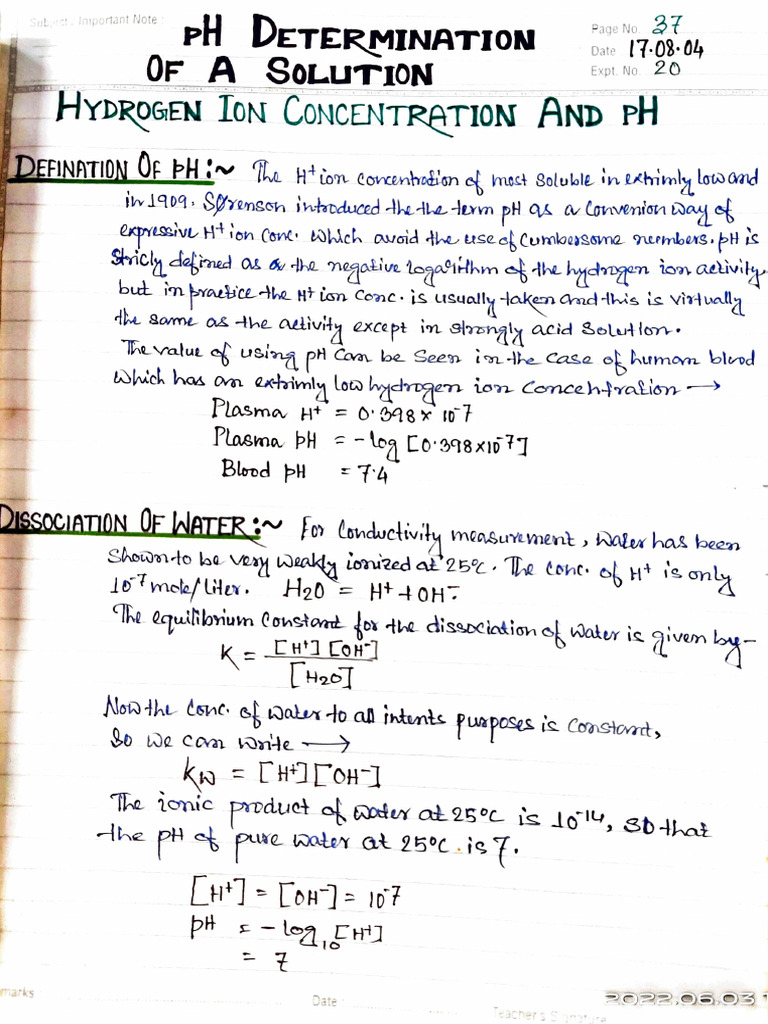 Subject / Important Note :
pH DETERMINATION
OF A SOLUTION
Page No. 37
Date 17.08.04
Expt. No. 20
HYDROGEN ION CONCENTRATION AND pH
DEFINATION OF pH:~ The H⁺ ion concentration of most soluble in extrimly low and
in 1909. SØrenson introduced the the term pH as a convenion way of
expressive H⁺ ion conc. which avoid the use of cumbersome numbers. pH is
stricly defined as the negative logarithm of the hydrogen ion activity.
but in practice the H⁺ ion conc. is usually taken and this is virtually
the same as the activity except in strongly acid solution.
The value of using pH can be seen in the case of human blood
which has an extrimly low hydrogen ion concentration →
Plasma H⁺ = 0.398 × 10⁻⁷
Plasma pH = -log [0.398×10⁻⁷]
Blood pH = 7.4
DISSOCIATION OF WATER:~ For conductivity measurement, water has been
shown to be very weakly ionized at 25°C. The conc. of H⁺ is only
10⁻⁷ mole/liter. H₂O = H⁺ + OH⁻.
The equilibrium constant for the dissociation of water is given by-
K = [H⁺] [OH⁻]
[H₂O]
Now the conc. of water to all intents purposes is constant,
so we can write →
Kw = [H⁺] [OH⁻]
The ionic product of water at 25°C is 10⁻¹⁴, so that
the pH of pure water at 25°C is 7.
[H⁺] = [OH⁻] = 10⁻⁷
pH = -log₁₀ [H⁺]
= 7
marks
Date :
Teacher's Signature
2022.06.03